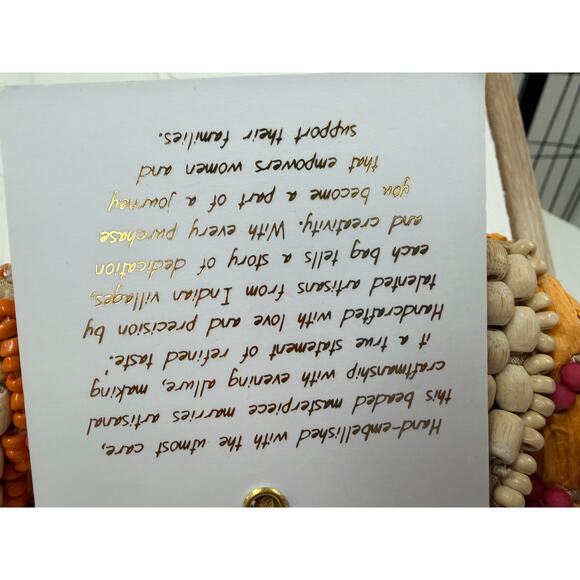 Hand-embellished with the utmost care,
this beaded masterpiece marries artisanal
craftmanship with evening allure, making
it a true statement of refined taste.
Handcrafted with love and precision by
talented artisans from Indian villages,
each bag tells a story of dedication
and creativity. With every purchase
you become a part of a journey
that empowers women and
support their families.